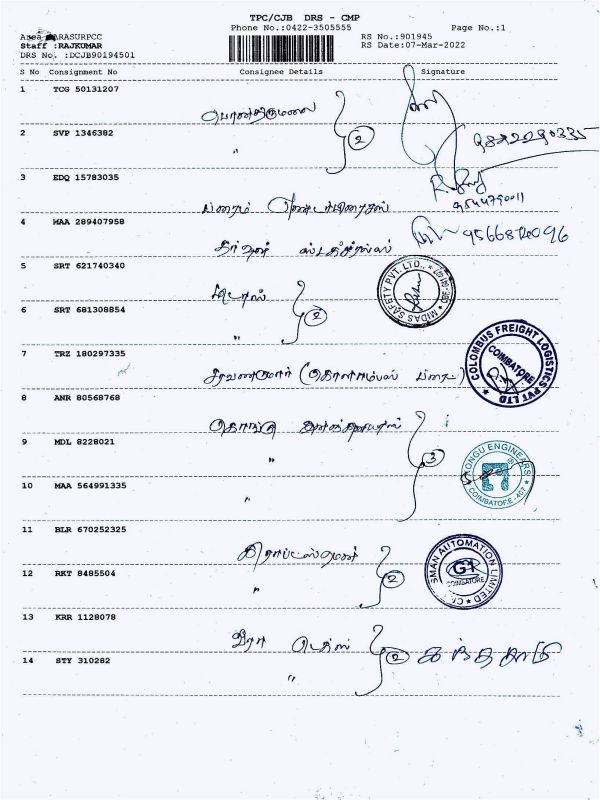 TPC/CJB DRS - CMP
Phone No.:0422-3505555 Page No.:1
RS No.:901945
ARASURPCC
Staff :RAJKUMAR RS Date:07-Mar-2022
DRS No. :DCJB90194501
S No Consignment No Consignee Details Signature
1 TCG 50131207
பொண்திருமலை 2
2 SVP 1346382
"
3 EDQ 15783035
பிரைம்
4 MAA 289407958
9566812096
5 SRT 621740340
மிடாஸ் 2 MIDAS SAFETY PVT. LTD.,
6 SRT 681308854
"
7 TRZ 180297335
சரவணகுமார் (கொளாம்பஸ் COLOMBUS FREIGHT LOGISTICS PVT LTD COIMBATORE
8 ANR 80568768
கொங்கு இன்ஜினியரஸ் 3
9 MDL 8228021
" KONGU ENGINEERS COIMBATORE - 407
10 MAA 564991335
"
11 BLR 670252325
கிராப்ட்ஸ்மென் 2 SMAN AUTOMATION LIMITED COIMBATORE
12 RKT 8485504
"
13 KRR 1128078
வீரா டெக்ஸ் 2
14 STY 310282
"